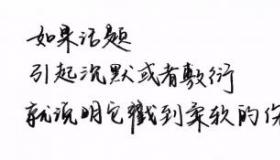 如果话题
引起沉默或者敷衍
就说明它戳到柔软的